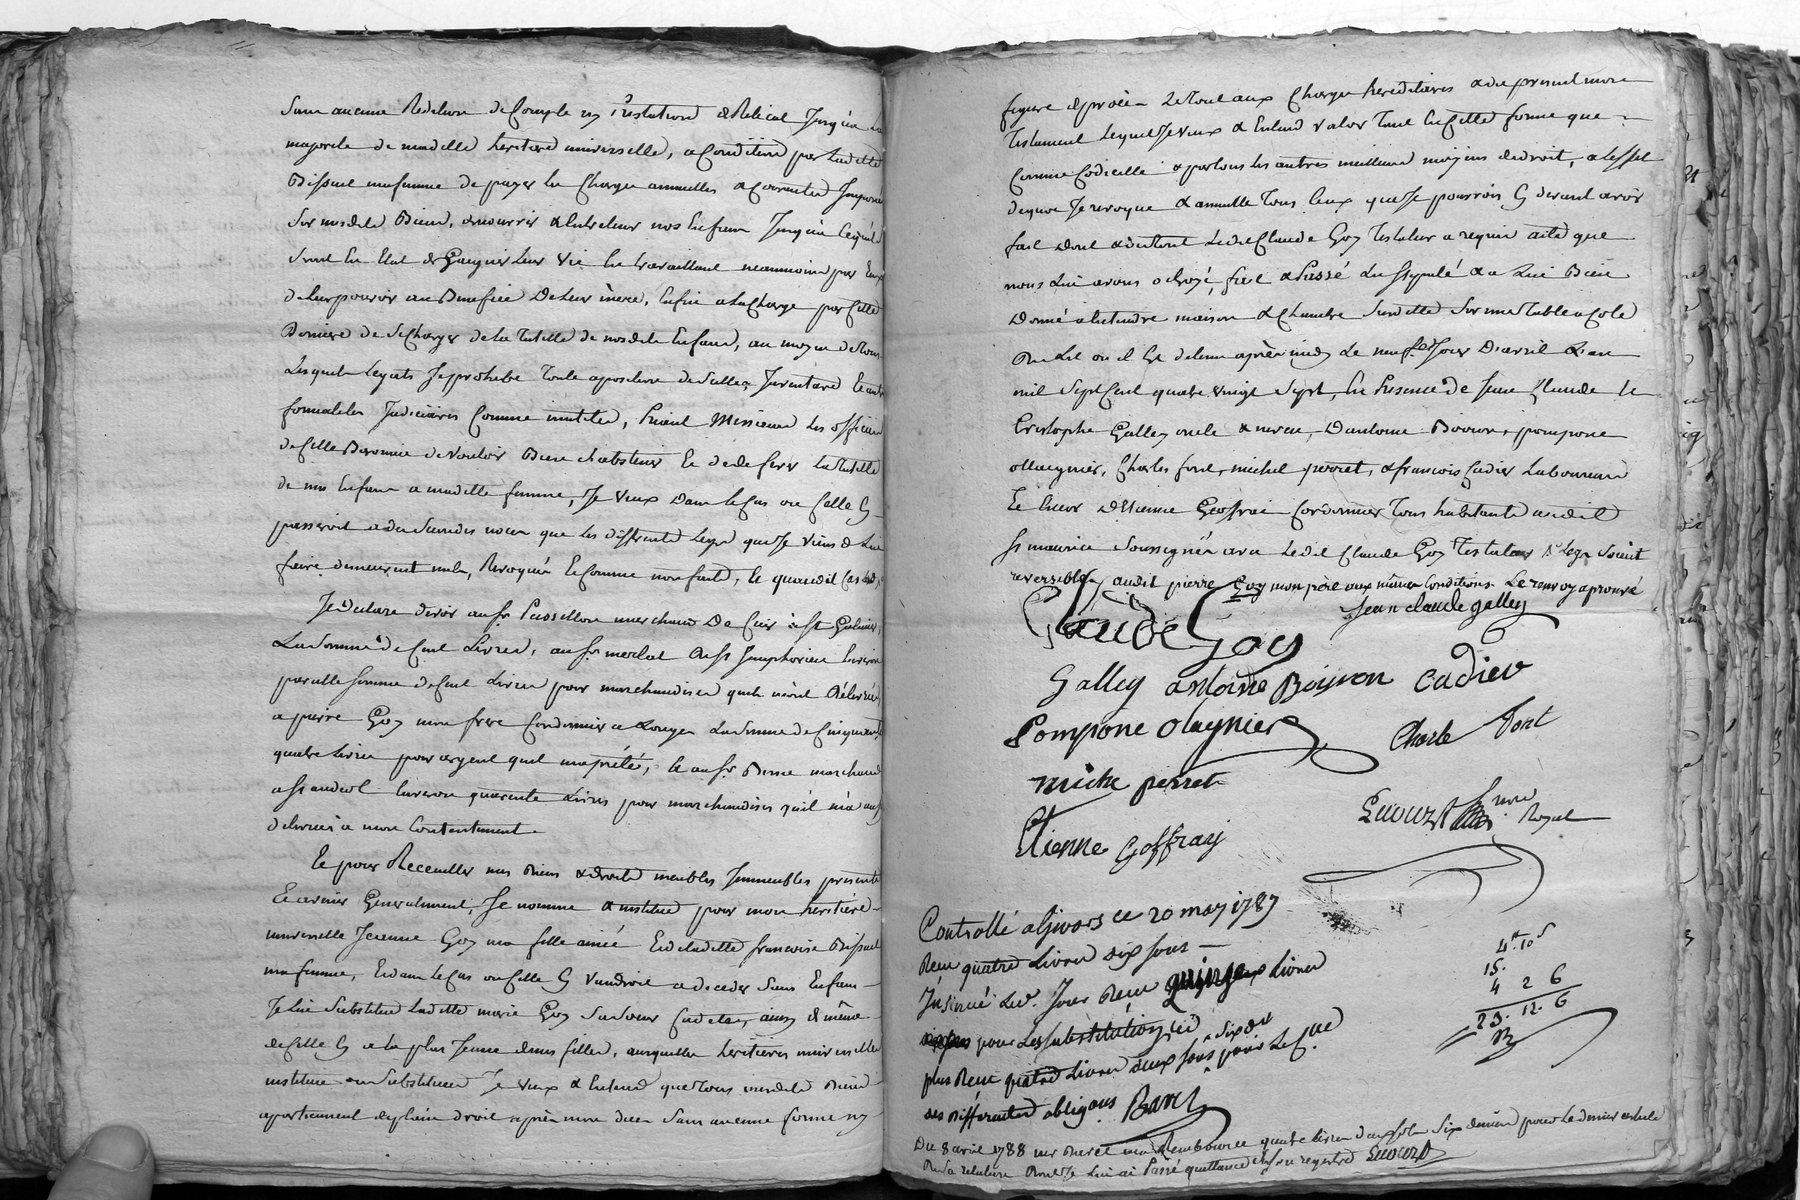 Sans aucune Reddition de Compte ny Prestation de Relicat Jusqu'à la
majorité de maditte heritiere universelle, a Condition par Laditte
Bissuel ma femme de payer les Charges annuelles & Courantes Imposées
Sur mesdits Biens, de nourrir & Entretenir nos Enfans Jusqu'a ce qu'ils
Soient En Etat de Gaigner Leur vie En travaillant neanmoins par Eux
de leur pouvoir au Benefice De Leur mere, Enfin a La Charge par Cette
Derniere de se Charger de La tutelle de mesdits Enfans, au moyen de tous
Lesquels Legats Je prohibe toute aposition de Scellez Inventaire Et autres
formalités Judiciaires Comme inutiles, Priant Messieurs les officiers
de Cette Baronnie de Vouloir Bien s'abstenir Et de deferer la tutelle
de mes Enfans a maditte femme, Je veux Dans le Cas ou Celle Cy
passeroit a de Secondes noces que les differents Legs que Je viens de Lui
faire demeurent nuls, Revoqués Et Comme non faits, le quandit Cas
Je Declare devoir au Sr Passillon marchand De Cuir a St Galmier,
La Somme de Cent Livres, au Sr merlat de St Simphorien Environ
pareille Somme de Cent Livres pour marchandises qu'ils m'ont Délivrées
a pierre Goy mon frere Cordonnier a Longes La Somme de Cinquante
quatre Livres pour argent qu'il m'a prêté, Et au Sr Berne marchand
a St andeol Environ quarante Livres pour marchandises qu'il m'a aussi
delivrées a mon Contentement.
Et pour Recueillir mes Biens & droits meubles Immeubles presents
Et avenir Generalement, Je nomme & institue pour mon heritiere
universelle Jeanne Goy ma fille ainée Et de laditte françoise Bissuel
ma femme, Et dans le Cas ou Celle Cy Viendroit a deceder Sans Enfans
Je lui Substitue Laditte marie Goy Sa Sœur Cadette, ainsy de même
de Celle Cy a la plus Jeune de mes filles, auxquelles heritieres universelles
instituée ou Substituées Je veux & Entend que tous mesdits Biens
apartiennent de plein droit après mon deces Sans aucune forme ny
figure de procès Le tout aux Charges hereditaires & du present mon
Testament Lequel Je Veux & Entend Valoir Tant En Cette forme que
Comme Codicille & par tous les autres meilleurs moyens de droit, a L'effet
de quoy Je revoque & annulle Tous Ceux que Je pourrois Cy devant avoir
fait dont & du tout Ledit Claude Goy Testateur a requis acte que
nous Lui avons octroyé, fait & Passé Lu Stipulé & a Lui Bien
Donné a Entendre maison & Chambre Susditte Sur une Table a Coté
Du Lit ou il Est detenu après midy Le neuf Jour D'avril L'an
mil Sept Cent quatre vingt Sept, En Presence de Jean Claude &
Cristophe Galley oncle & neveu, D'antoine Boiron, pompone
ollaignier, Charles fort, michel perret, & francois Cadier Laboureurs
Et Sieur D'Etienne Geoffrai Cordonnier Tous habitants audit
St maurice Soussignés avec Ledit Claude Goy Testateur & Legs Seront
reversibles audit pierre Goy mon père aux mêmes Conditions. Le renvoy aprouvé
Jean claude galley
Claude Goy
Galley antoine Boyron Cadier
Pompone olagnier Charle Fort
miche perret
nore Royal
Etienne Goffray
Controllé a Givors ce 20 may 1787
Reçu quatre Livres dix sous
Insinué Led. Jour Reçu quinze Livres
pour Les substitutions, ci
plus Reçu quatre Livres deux sous six drs pour Le Cue
des differantes obligons
4tt. 10s
15.
4 2 6
23. 12. 6
Du 8 avril 1788 mr Baret ma Rembourcé quatre livres deux sols six deniers pour Le dernier article
De sa relation Dont Je Lui ai Passé quittance a Son registre